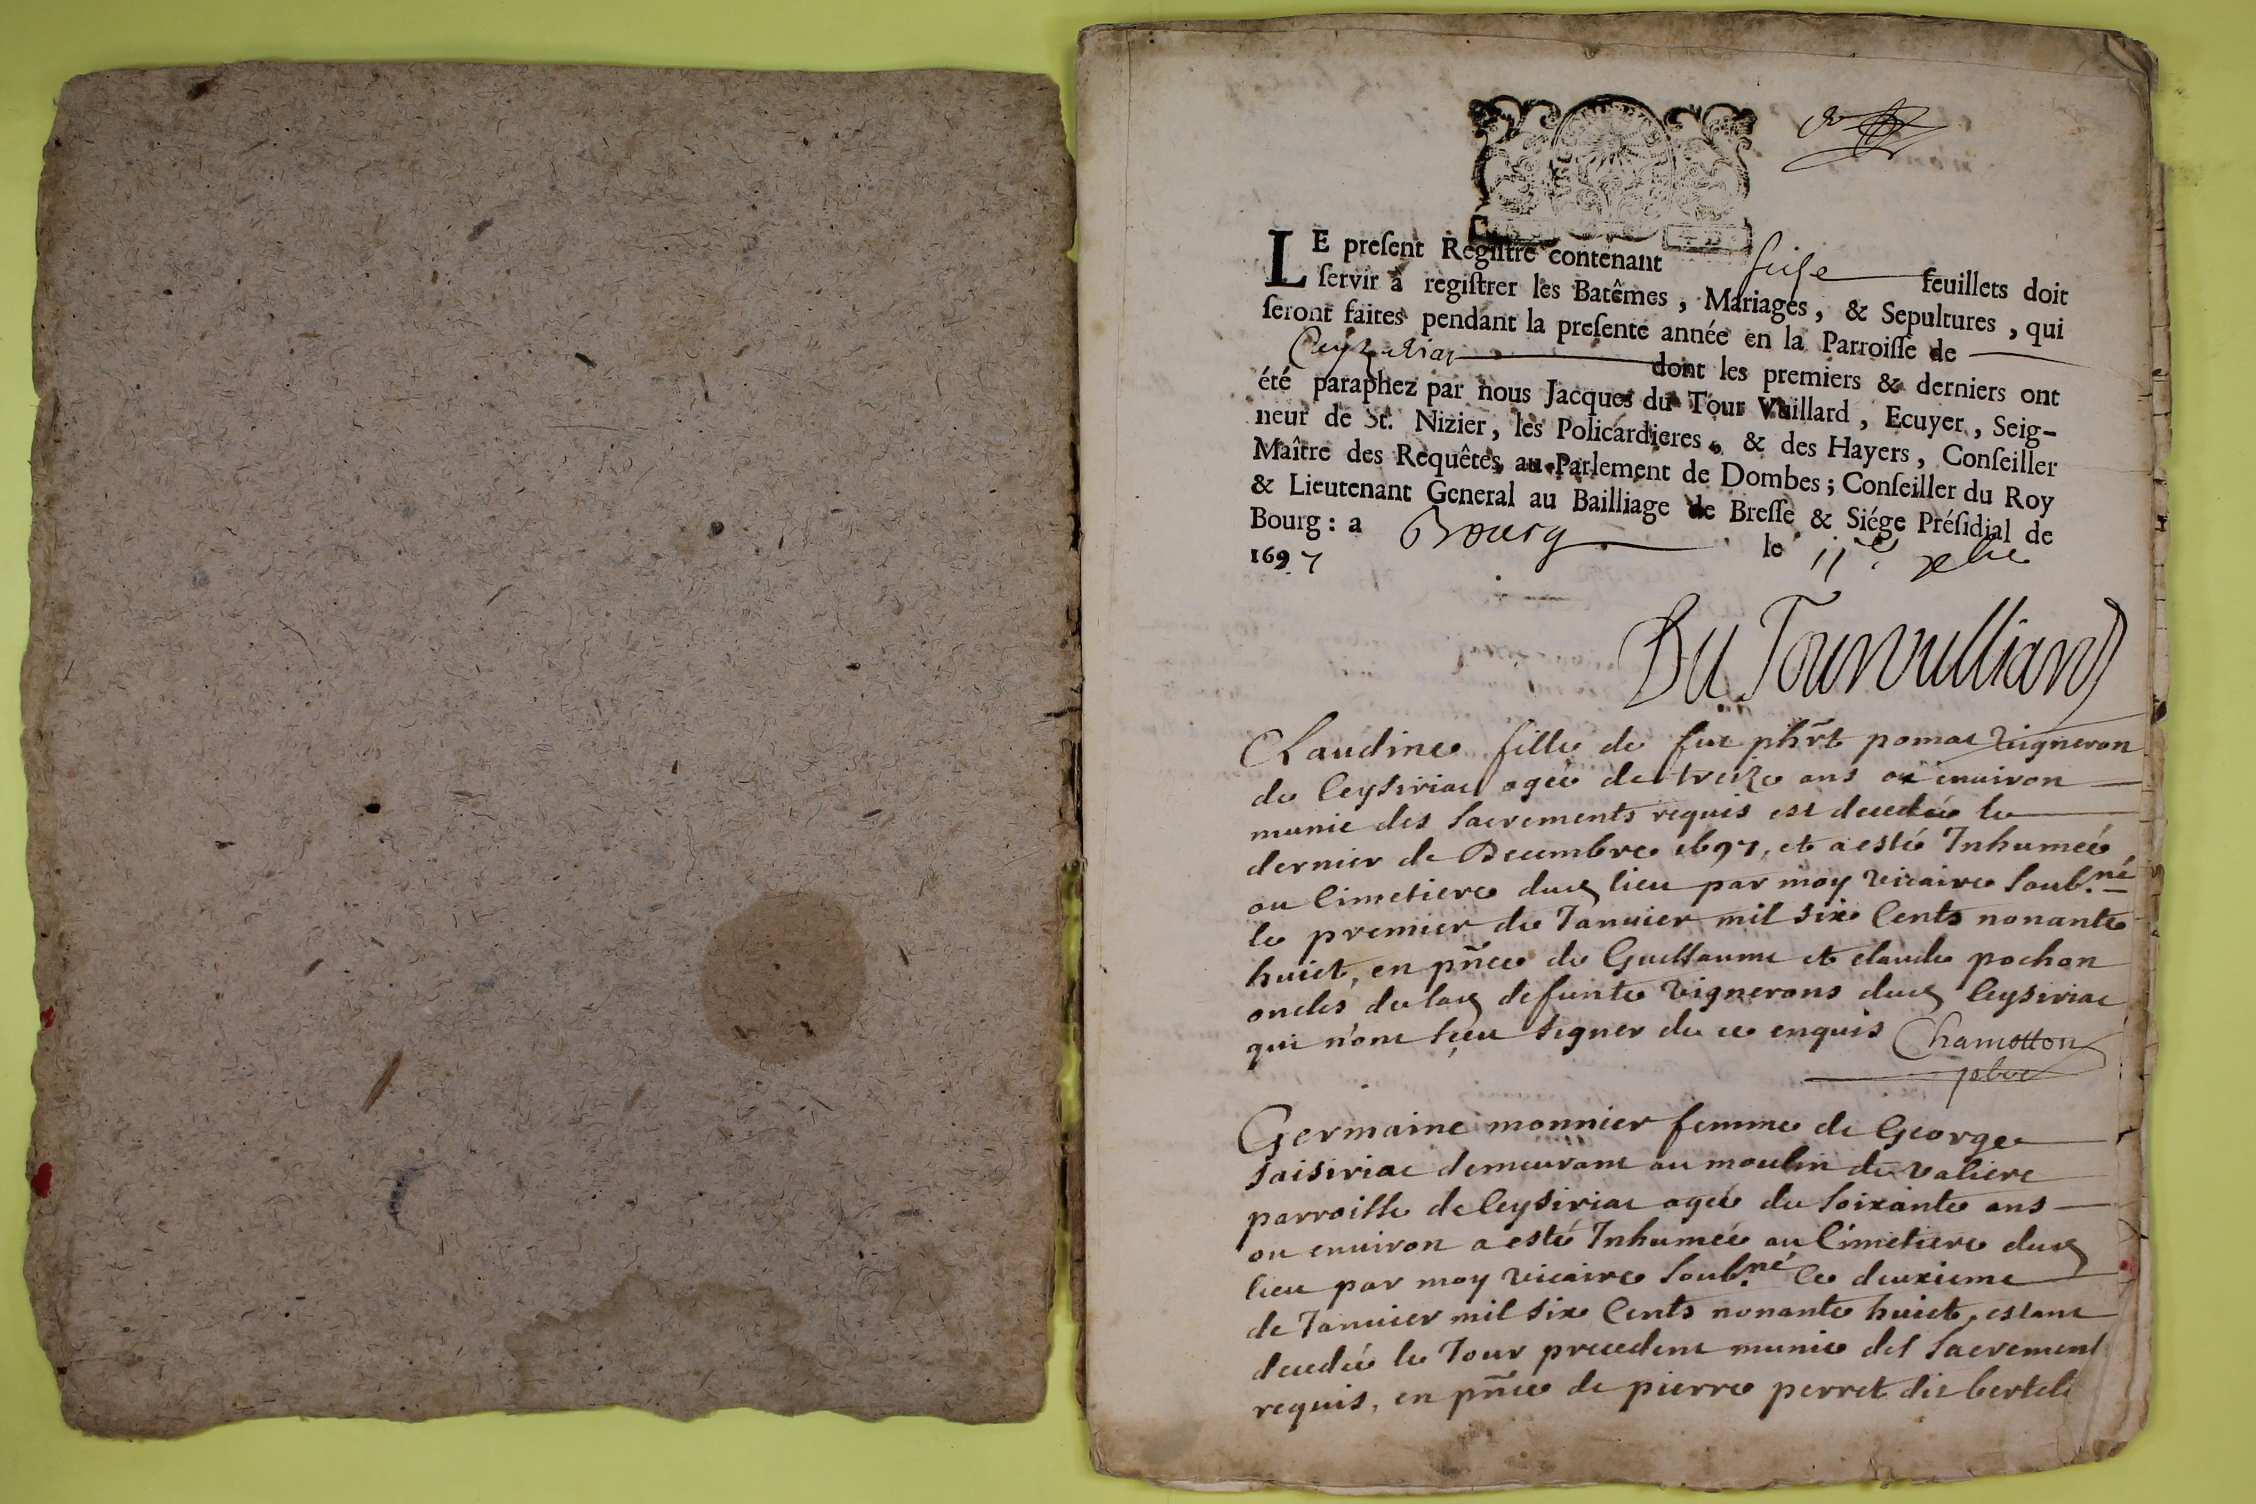 LE preſent Regiſtre contenant seise feuillets doit
ſervir à regiſtrer les Batêmes, Mariages, & Sepultures, qui
ſeront faites pendant la preſente année en la Parroiſſe de
Ceyzeriat dont les premiers & derniers ont
été paraphez par nous Jacques du Tour Vuillard, Ecuyer, Seig-
neur de St. Nizier, les Policardieres, & des Hayers, Conſeiller
Maître des Requêtes au Parlement de Dombes; Conſeiller du Roy
& Lieutenant General au Bailliage de Breſſe & Siége Préſidial de
Bourg: a Bourg le 11e xbre
1697
Du Tourvulliard
Claudine fille de feu phrt pomat vigneron
de Ceysiriat agée de treize ans ou environ
munie des Sacrements requis est decedée le
dernier de Decembre 1697, et a esté Inhumée
au Cimetiere dud lieu par moy vicaire soubné
le premier de Janvier mil six Cents nonante
huict, en pñce de Guillaume et claude pochon
oncles de lad defunte vignerons dud Ceysiriat
qui n'ont sçeu signer de ce enquis Chamotton
pbre
Germaine monnier femme de George
saisiriat demeurant au moulin de valiere
parroisse de Ceysiriat agée de soixante ans
ou environ a esté Inhumée au Cimetiere dud
lieu par moy vicaire soubné le deuxieme
de Janvier mil six Cents nonante huict, estant
decedée le Jour precedent munie des Sacrement
requis, en pñce de pierre perret dit